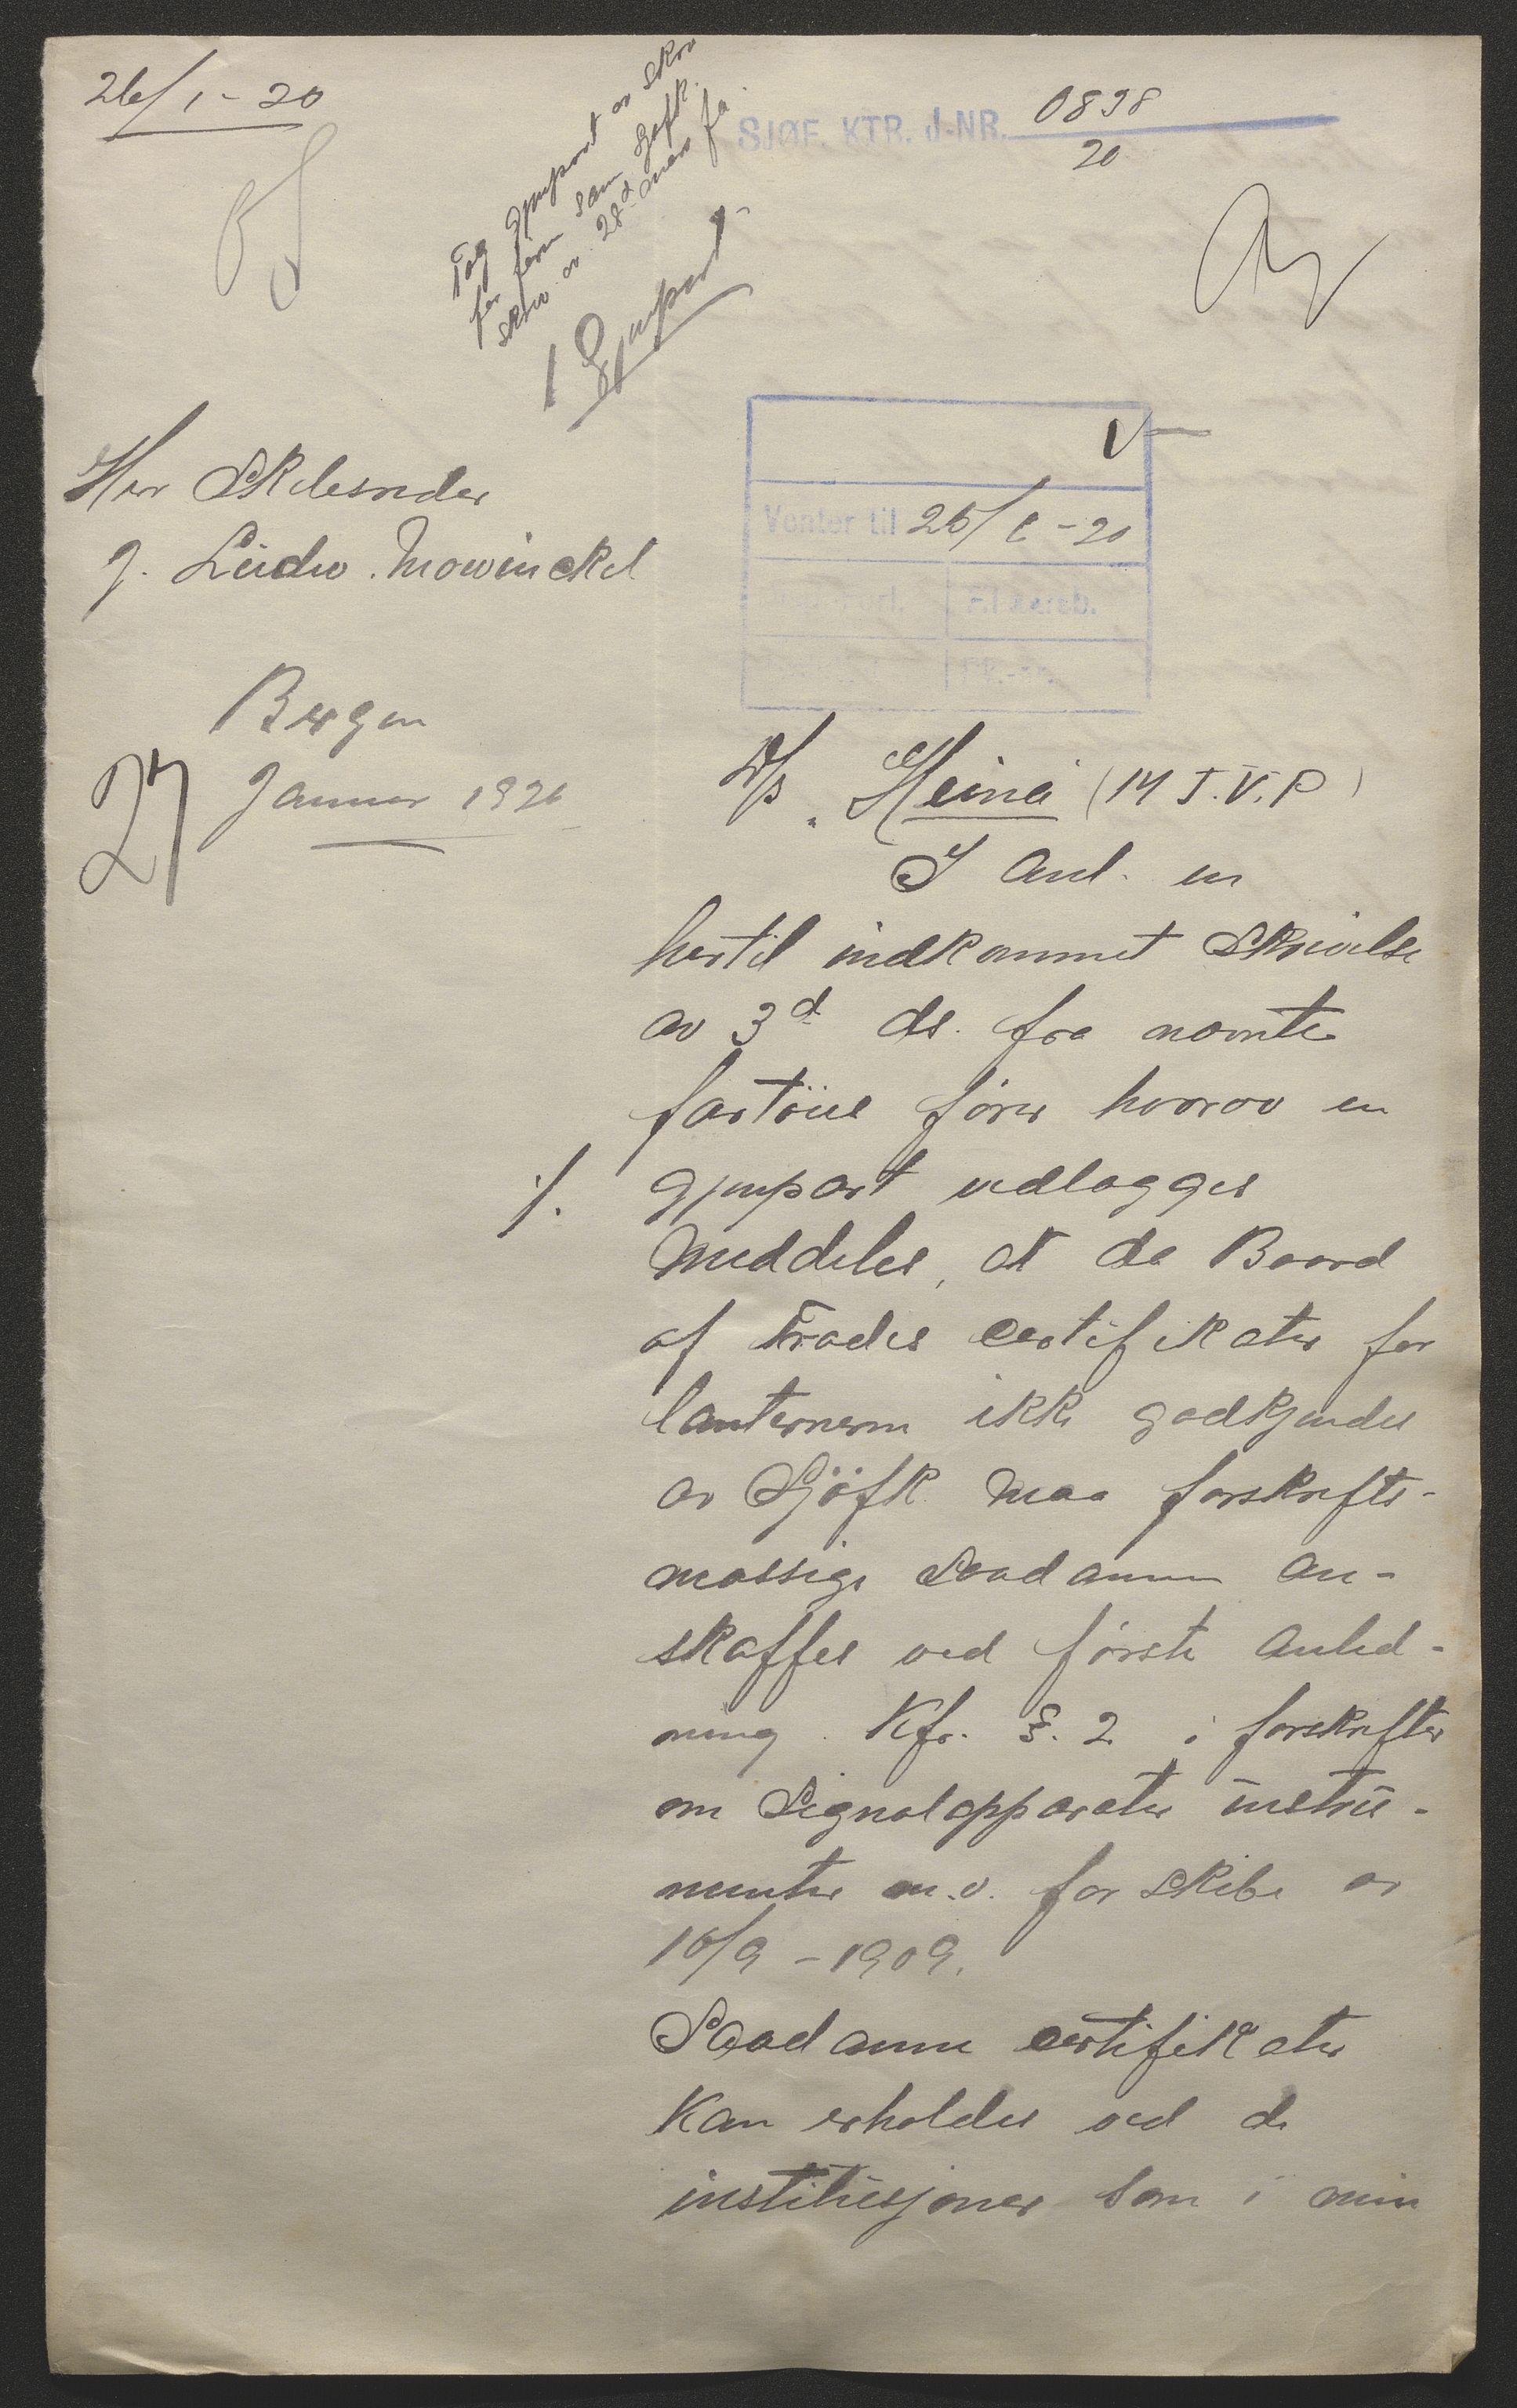 26/1-20
SJØF. KTR. J-NR. 0898
20
Tag gjenpart av skr
for fører som Sjøfk.
skriv av 28d
1 Gjenpart
Venter til 26/1-20
Herr Skibsreder
J. Ludw. Mowinckel
Bergen
27 Januar 1920
D/S "Heina" (M.J.V.P)
I anl. en
hertil indkommet skrivelse
av 3d ds. fra nævnte
fartøies fører hvorav en
./. gjenpart vedlægges
meddeles, at da Board
of Trades certifikater for
lanternerne ikke godkjendes
av Sjøfk. maa forskrifts-
mæssige saadanne an-
skaffes ved første anled-
ning. Kfr. §. 2 i forskrifter
om Signalapparater instru-
menter m.v. for skibe av
10/9-1909.
Saadanne certifikater
kan erholdes ved de
institusjoner som i min